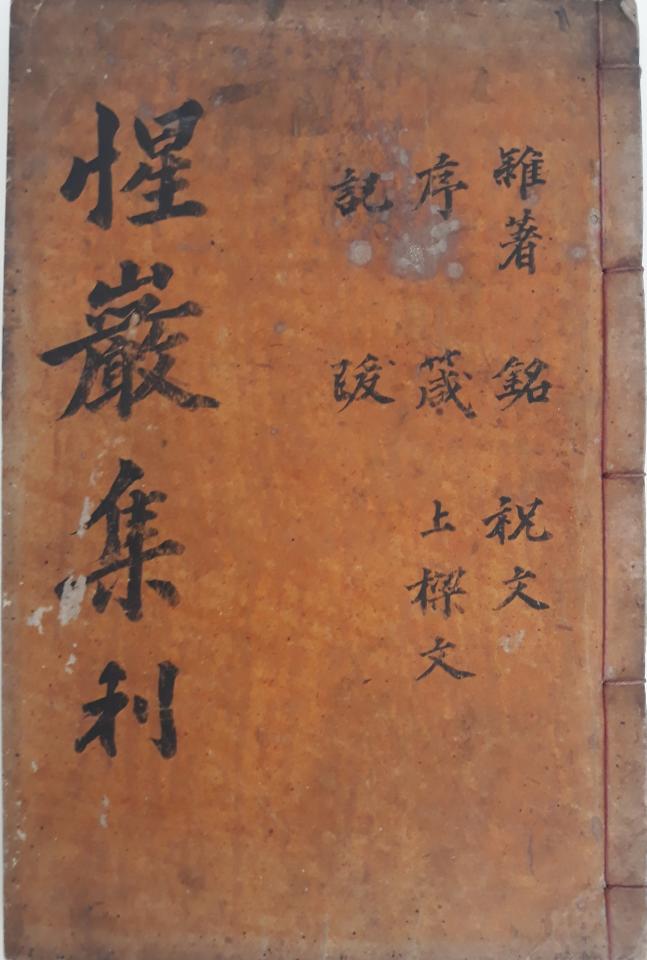 雜著 銘 祝文
序 箴 上樑文
記 跋
惺巖集利